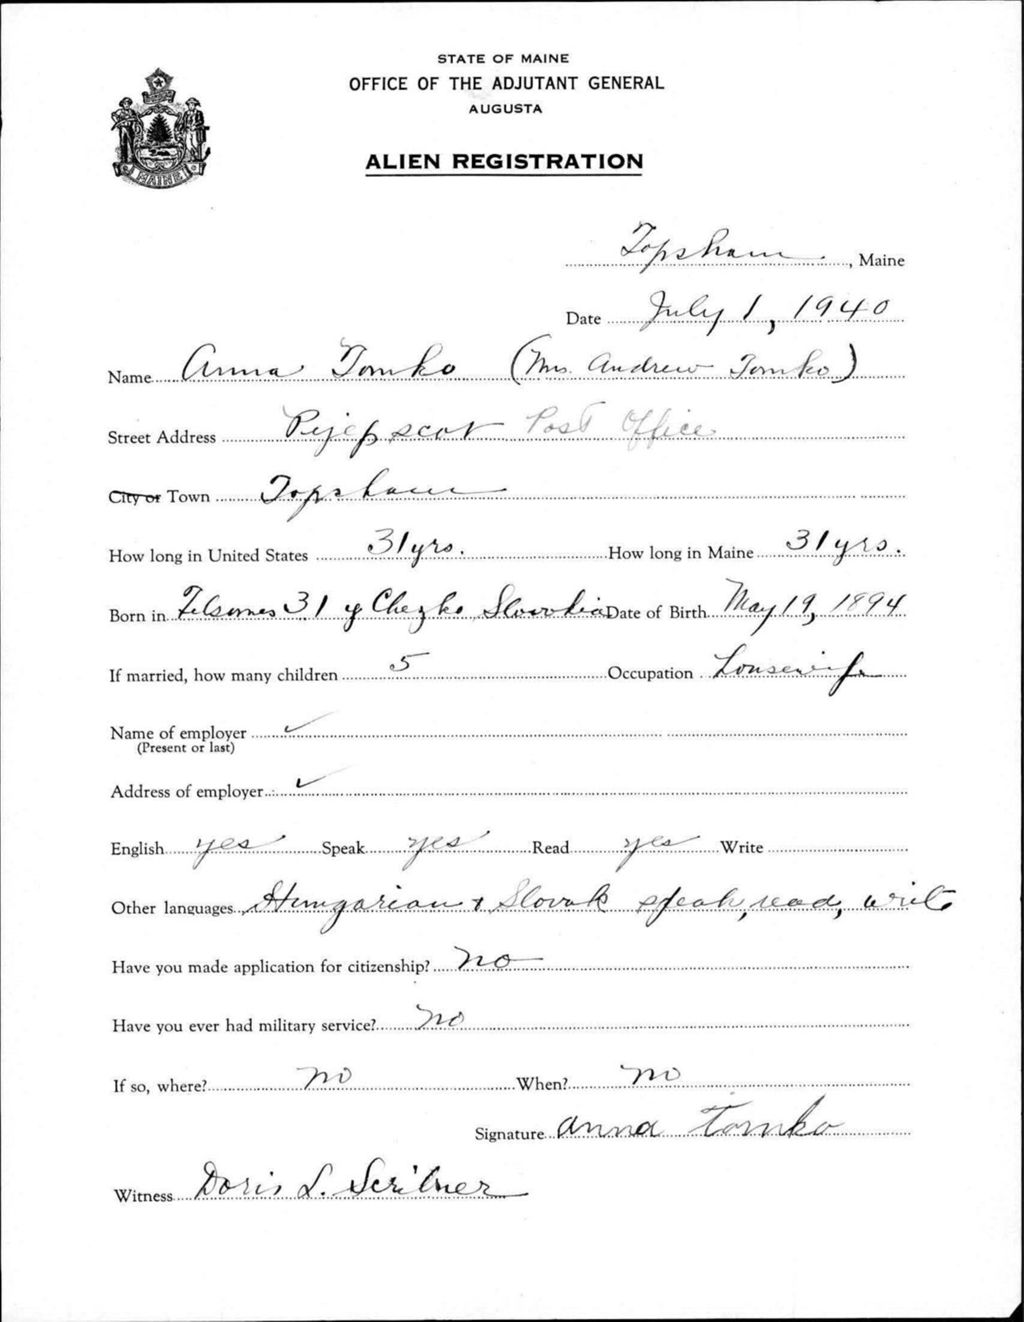 STATE OF MAINE
OFFICE OF THE ADJUTANT GENERAL
AUGUSTA
ALIEN REGISTRATION
MAINE
Topsham, Maine
Date July 1, 1940
Name Anna Tomko (Mrs. Andrew Tomko)
Street Address Pejepscot Post Office
City or Town Topsham
How long in United States 31 yrs. How long in Maine 31 yrs.
Born in 31 y Chezko Slovokia Date of Birth May 19, 1894
If married, how many children 5 Occupation Housewife
Name of employer ✓
(Present or last)
Address of employer ✓
English yes Speak yes Read yes Write
Other languages Hungarian & Slovak speak, read, write
Have you made application for citizenship? no
Have you ever had military service? no
If so, where? no When? no
Signature Anna Tomko
Witness Doris L. Scribner